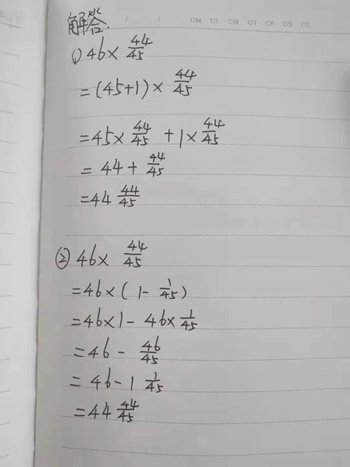 解答.
MO TU WE TH FR SA SU
① 46 × 44/45
= (45+1) × 44/45
= 45 × 44/45 + 1 × 44/45
= 44 + 44/45
= 44 44/45
② 46 × 44/45
= 46 × (1 - 1/45)
= 46 × 1 - 46 × 1/45
= 46 - 46/45
= 46 - 1 1/45
= 44 44/45